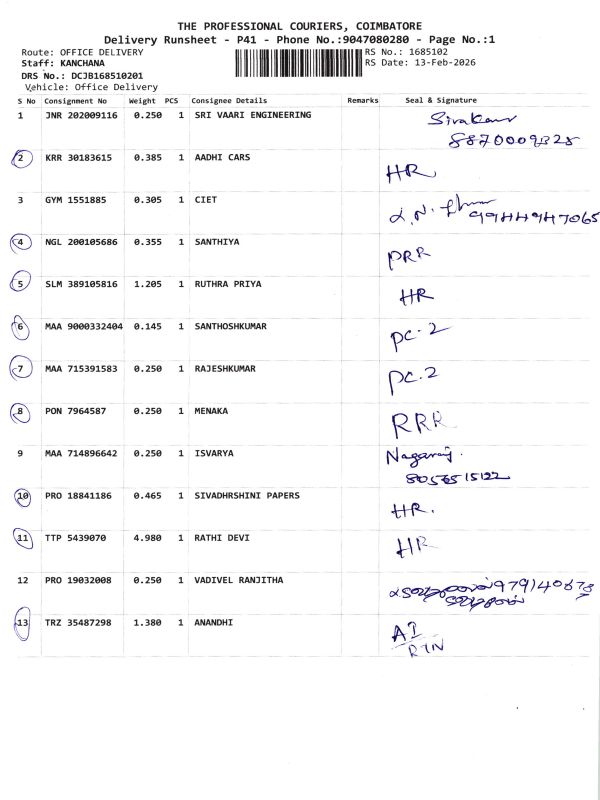 THE PROFESSIONAL COURIERS, COIMBATORE
Delivery Runsheet - P41 - Phone No.:9047080280 - Page No.:1
Route: OFFICE DELIVERY RS No.: 1685102
Staff: KANCHANA RS Date: 13-Feb-2026
DRS No.: DCJB168510201
Vehicle: Office Delivery
S No Consignment No Weight PCS Consignee Details Remarks Seal & Signature
1 JNR 202009116 0.250 1 SRI VAARI ENGINEERING
2 KRR 30183615 0.385 1 AADHI CARS HR
3 GYM 1551885 0.305 1 CIET 9944947065
4 NGL 200105686 0.355 1 SANTHIYA PRR
5 SLM 389105816 1.205 1 RUTHRA PRIYA HR
6 MAA 9000332404 0.145 1 SANTHOSHKUMAR PC-2
7 MAA 715391583 0.250 1 RAJESHKUMAR PC.2
8 PON 7964587 0.250 1 MENAKA RRR
9 MAA 714896642 0.250 1 ISVARYA Nagaraj.
10 PRO 18841186 0.465 1 SIVADHRSHINI PAPERS HR.
11 TTP 5439070 4.980 1 RATHI DEVI HR
12 PRO 19032008 0.250 1 VADIVEL RANJITHA
13 TRZ 35487298 1.380 1 ANANDHI AI
RTN